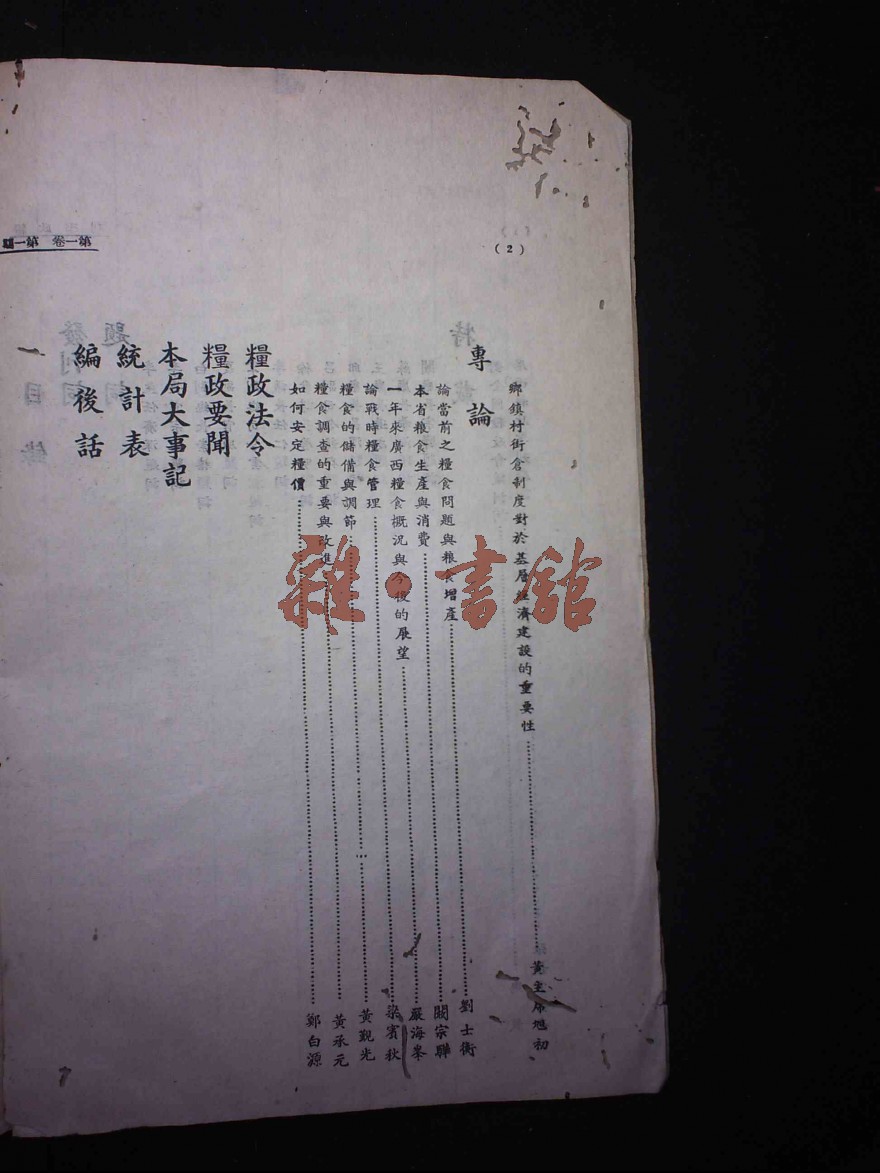 第一卷 第一
(2)
鄉鎮村街倉制度對於基層經濟建設的重要性……黃主席旭初
專論
論當前之糧食問題與粮食增產……劉士衡
本省粮食生產與消費……闕宗聯
一年來廣西糧食概況與今後的展望……嚴海峯
論戰時糧食管理……梁賓秋
糧食的儲備與調節……黃覲光
糧食調查的重要與改進……黃承元
如何安定糧價……鄭白源
糧政法令
糧政要聞
本局大事記
統計表
編後話
雜·書館